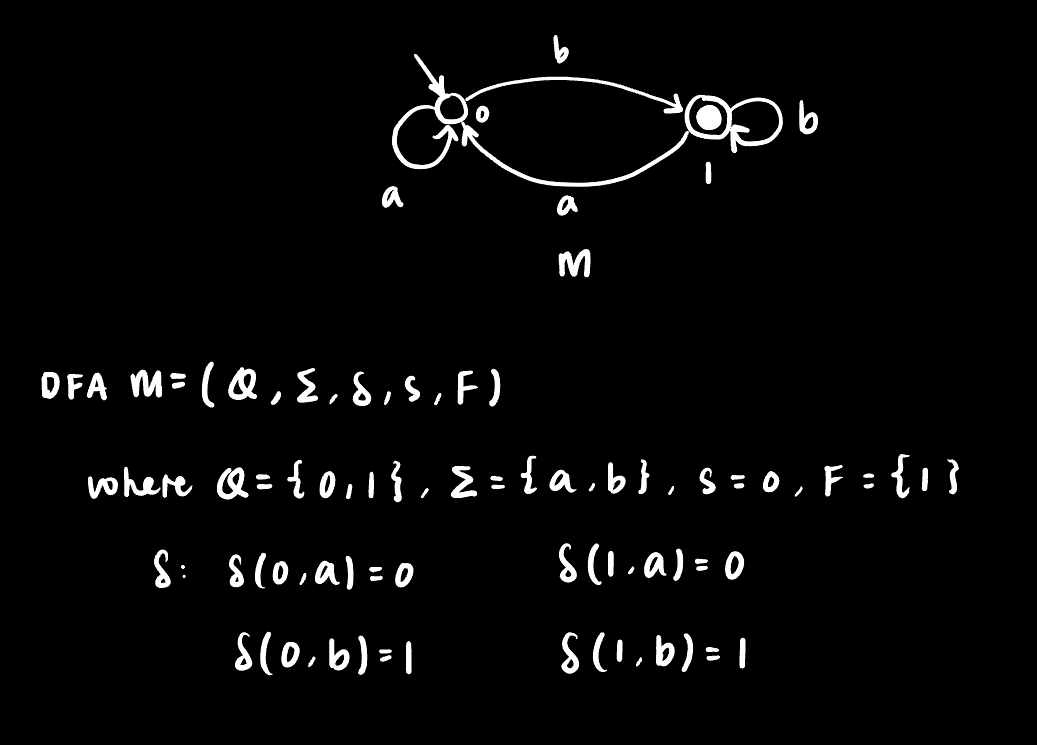 b
0
b
1
a
a
M
DFA M = (Q, Σ, δ, s, F)
where Q = {0,1}, Σ = {a,b}, s = 0, F = {1}
δ: δ(0,a) = 0 δ(1,a) = 0
δ(0,b) = 1 δ(1,b) = 1